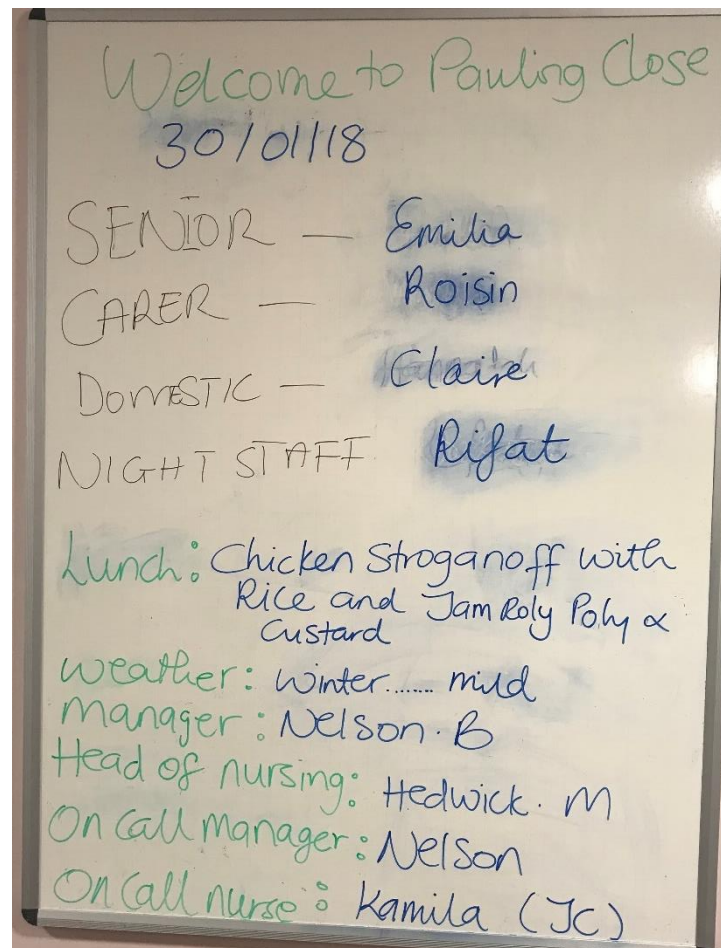 Welcome to Pauling Close
30/01/18
SENIOR — Emilia
CARER — Roisin
DOMESTIC — Claire
NIGHT STAFF Rifat
Lunch: Chicken Stroganoff with
Rice and Jam Roly Poly &
Custard
Weather: Winter....... mild
Manager: Nelson. B
Head of nursing: Hedwick. M
On Call manager: Nelson
On Call nurse: Kamila (JC)